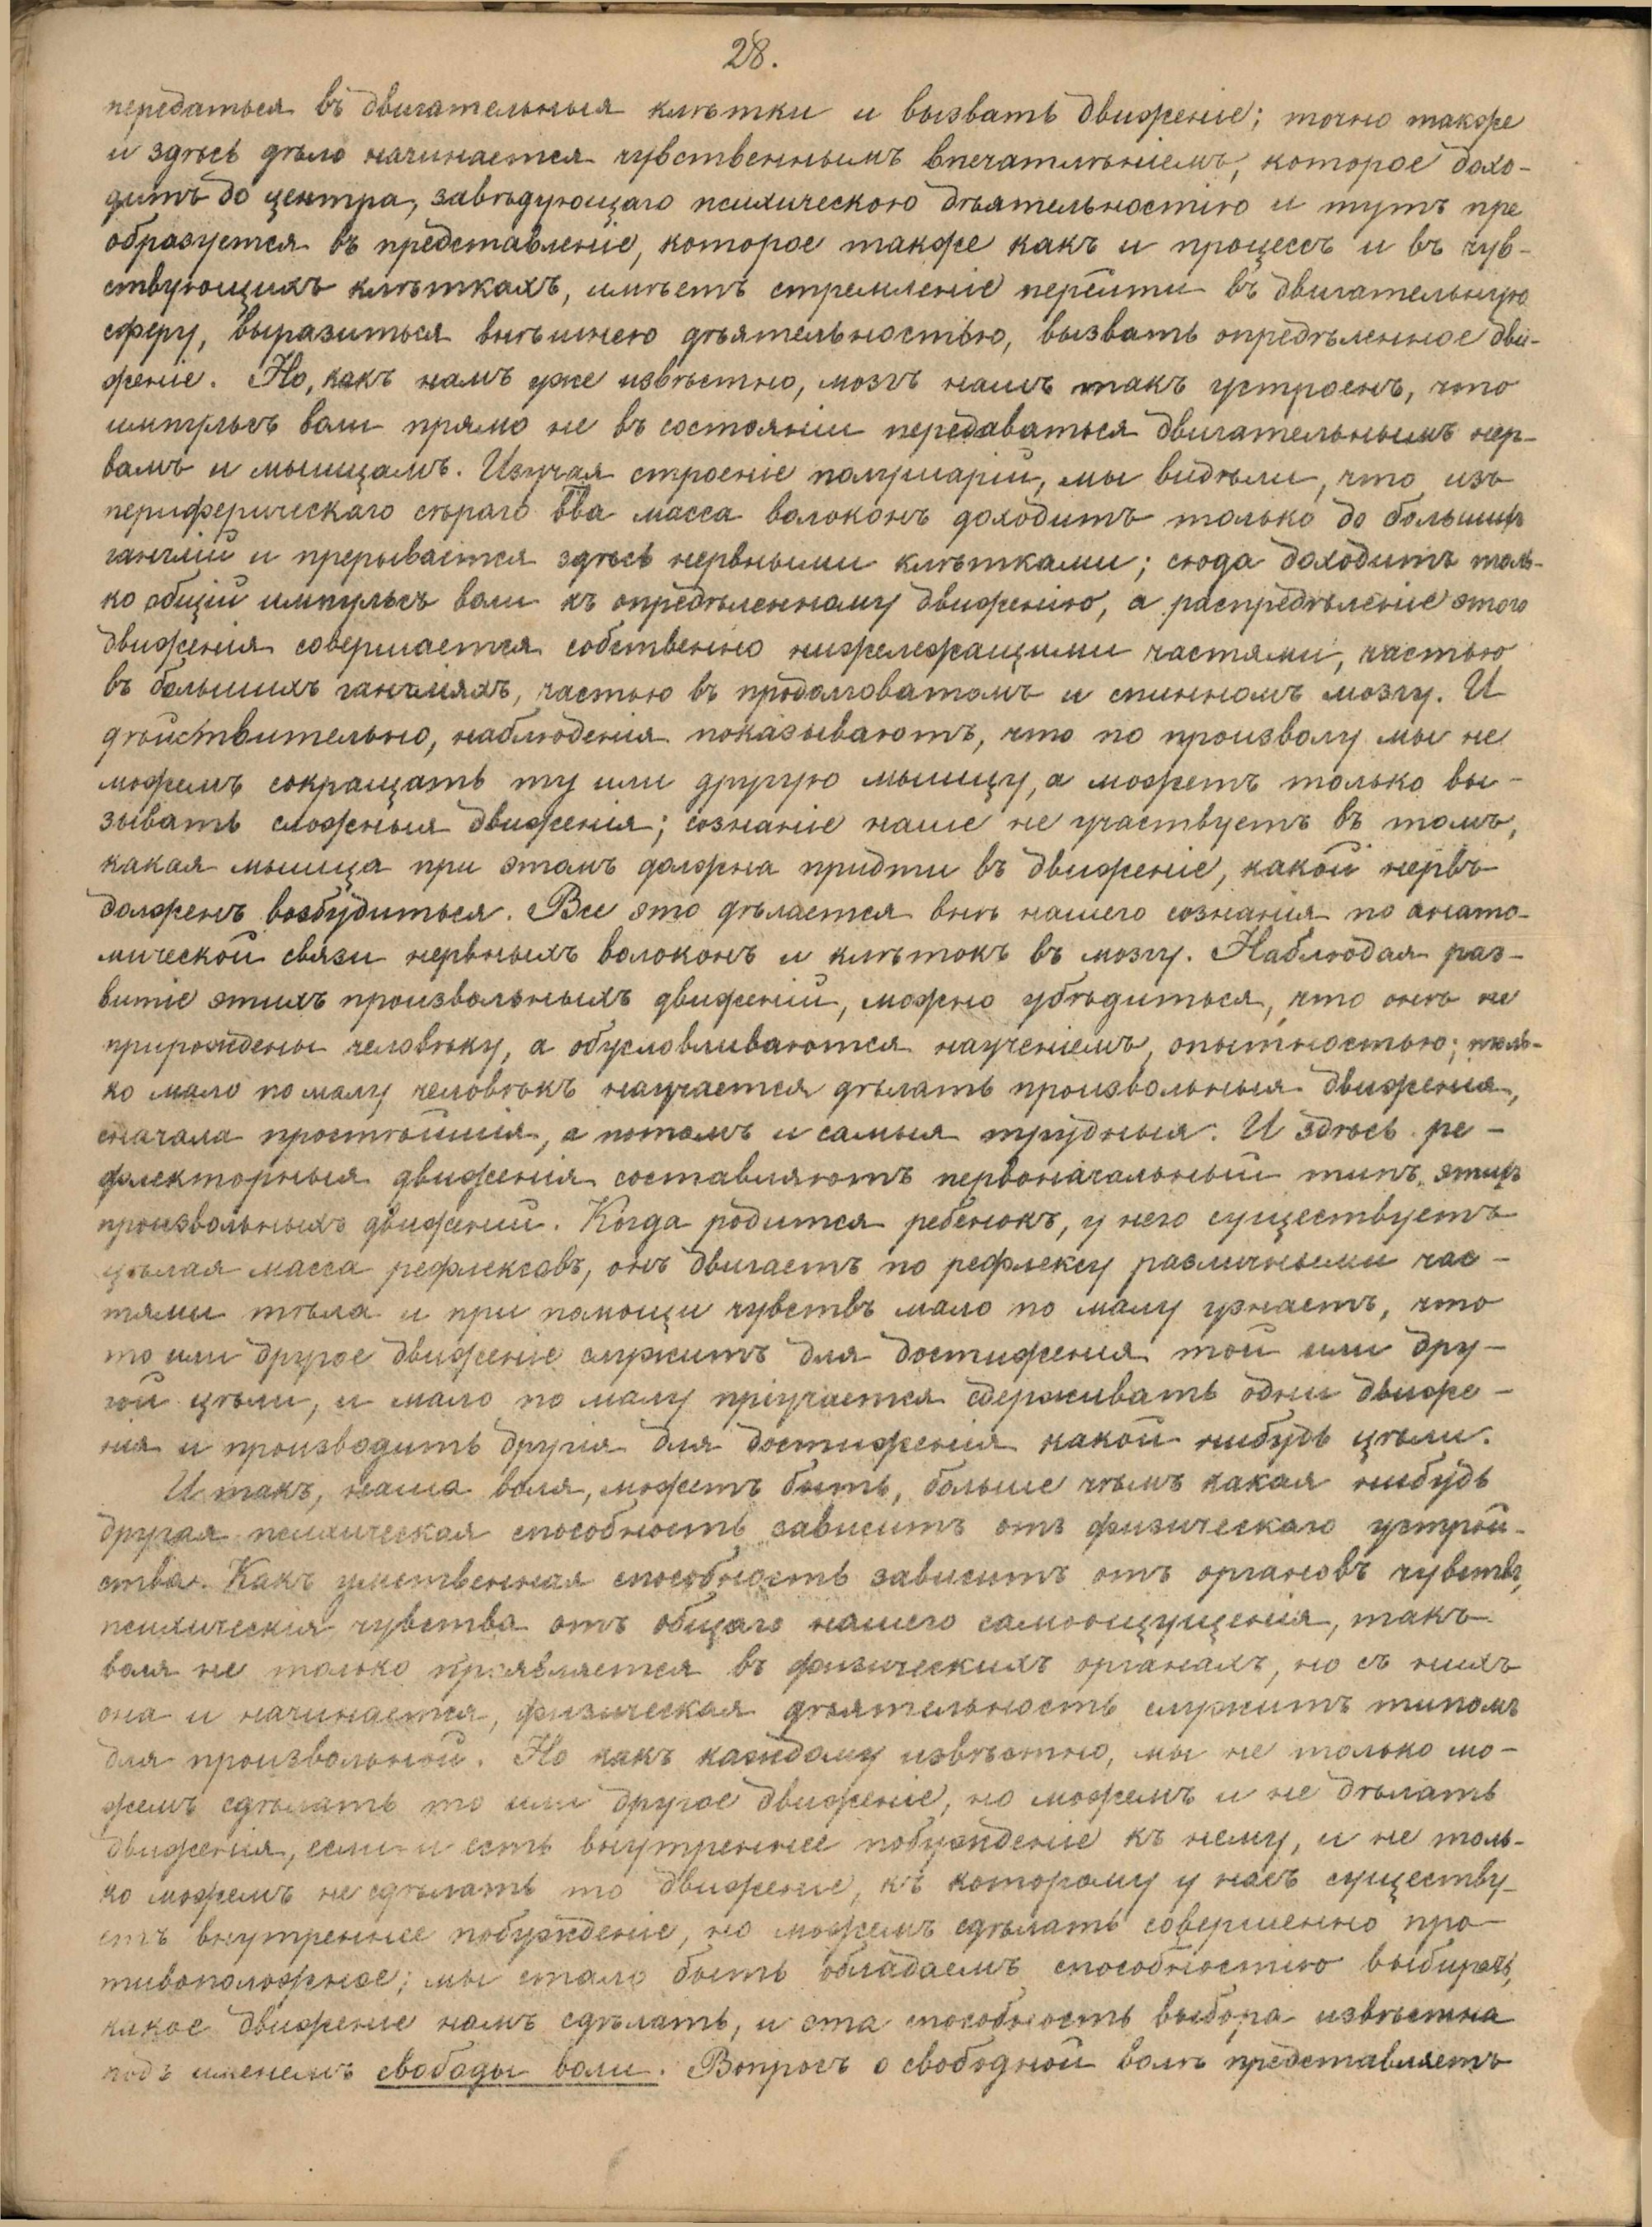 28.
передаться въ двигательныя клѣтки и вызвать движеніе; точно также
и здѣсь дѣло начинается чувственнымъ впечатлѣніемъ, которое дохо-
дитъ до центра, завѣдующаго психическою дѣятельностію и тутъ пре
образуется въ представленіе, которое также какъ и процессъ и въ чув-
ствующихъ клѣткахъ, имѣетъ стремленіе перейти въ двигательную
сферу, выразиться внѣшнею дѣятельностью, вызвать опредѣленное дви-
женіе. Но, какъ намъ уже извѣстно, мозгъ нашъ такъ устроенъ, что
импульсъ воли прямо не въ состояніи передаваться двигательнымъ нер-
вамъ и мышцамъ. Изучая строеніе полушарій, мы видѣли, что изъ
периферическаго сѣраго в̅ва масса волоконъ доходитъ только до большихъ
ганглій и прерывается здѣсь нервными клѣтками; сюда доходитъ толь-
ко общій импульсъ воли къ опредѣленному движенію, а распредѣленіе этого
движенія совершается собственно нижележащими частями, частью
въ большихъ гангліяхъ, частью въ продолговатомъ и спинномъ мозгу. И
дѣйствительно, наблюденія показываютъ, что по произволу мы не
можемъ сокращать ту или другую мышцу, а можетъ только вы-
зывать сложныя движенія; сознаніе наше не участвуетъ въ томъ,
какая мышца при этомъ должна придти въ движеніе, какой нервъ
долженъ возбудиться. Все это дѣлается внѣ нашего сознанія по анато-
мической связи нервныхъ волоконъ и клѣтокъ въ мозгу. Наблюдая раз-
витіе этихъ произвольныхъ движеній, можно убѣдиться, что онѣ не
прирождены человѣку, а обусловливаются наученіемъ, опытностью; толь-
ко мало по малу человѣкъ научается дѣлать произвольныя движенія,
сначала простѣйшія, а потомъ и самыя трудныя. И здѣсь ре-
флекторныя движенія составляютъ первоначальный типъ этихъ
произвольныхъ движеній. Когда родится ребенокъ, у него существуетъ
цѣлая масса рефлексовъ, онъ двигаетъ по рефлексу различными час-
тями тѣла и при помощи чувствъ мало по малу узнаетъ, что
то или другое движеніе служитъ для достиженія той или дру-
гой цѣли, и мало по малу пріучается сдерживать одни движе-
нія и производить другія для достиженія какой нибудь цѣли.
И такъ, наша воля, можетъ быть, больше чѣмъ какая нибудь
другая психическая способность зависитъ отъ физическаго устрой-
ства. Какъ умственная способность зависитъ отъ органовъ чувствъ,
психическія чувства отъ общаго нашего самоощущенія, такъ
воля не только проявляется въ физическихъ органахъ, но съ нихъ
она и начинается, физическая дѣятельность служитъ типомъ
для произвольной. Но какъ каждому извѣстно, мы не только мо-
жемъ сдѣлать то или другое движеніе, но можемъ и не дѣлать
движенія, если и есть внутреннее побужденіе къ нему, и не толь-
ко можемъ не сдѣлать то движеніе, къ которому у насъ существу-
етъ внутреннее побужденіе, но можемъ сдѣлать совершенно про-
тивоположное; мы стало быть обладаемъ способностію выбирать,
какое движеніе намъ сдѣлать, и эта способность выбора извѣстна
подъ именемъ свободы воли. Вопросъ о свободной волѣ представляетъ